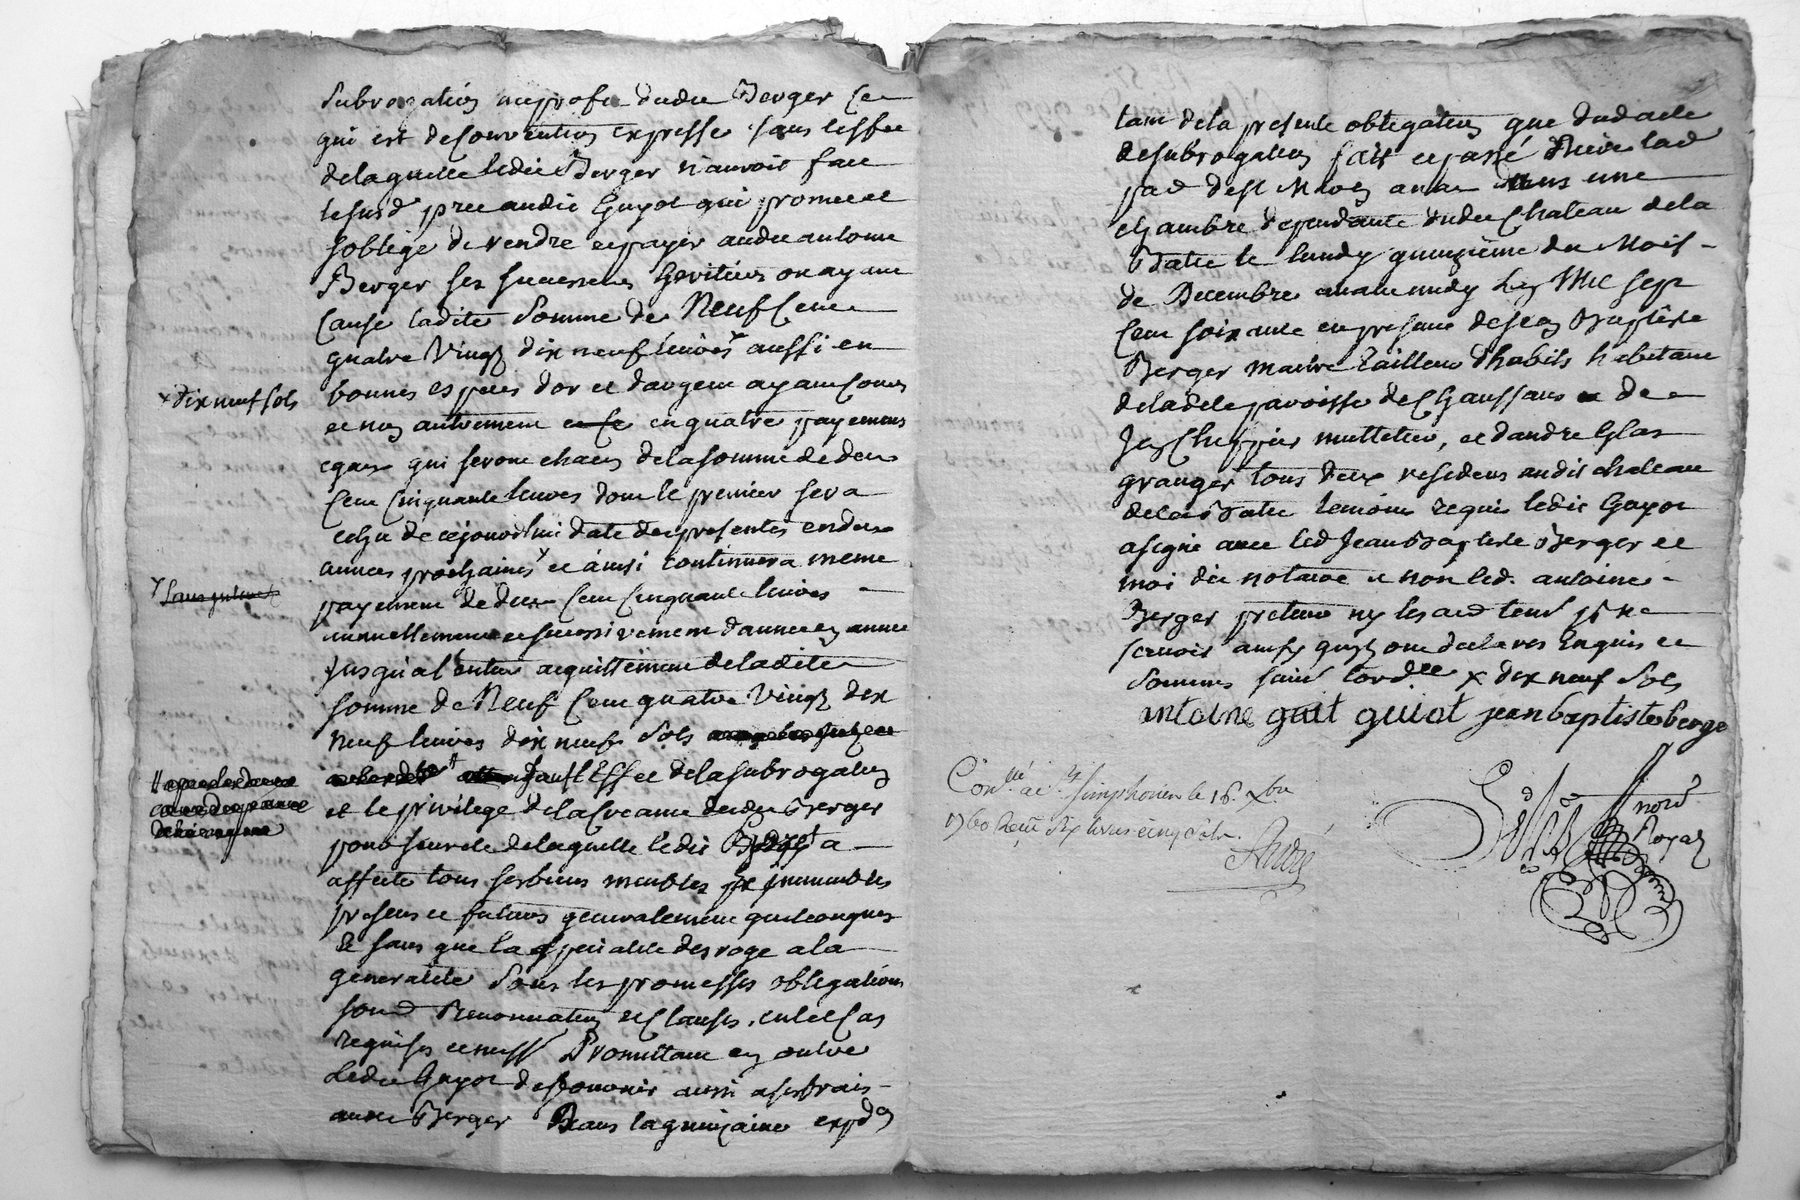 subrogation au profit dudit Berger ce
qui est de convention expresse sans l'effet
de laquelle ledit Berger n'auroit fait
le susd. pret audit Guyot qui promet et
s'oblige de rendre et payer audit antoine
Berger ses successeurs heritiers ou ayant
cause ladite somme de Neuf Cent
quatre vingt dix neuf livres x aussi en
x dix neuf sols
bonnes especes d'or et d'argent ayant cours
et non autrement en quatre payemens
egaux qui seront chacun de la somme de deux
cent cinquante livres dont le premier sera
echu de cejourd'hui date des presentes en deux
annees prochaines et ainsi continuera meme
payement de deux cent cinquante livres
annuellement et successivement d'annee en annee
jusqu'a l'entier acquittement de ladite
somme de Neuf Cent quatre vingt dix
neuf livres dix neuf sols
sauf l'Effet de la subrogation
et le privilege de la creance dudit Berger
pour seureté de laquelle ledit a
affecté tous ses biens meubles immeubles
presens et futurs generalement quelconques
sans que la specialité desroge a la
generalité sous les promesses obligations
renonciation et clauses, en tel cas
requises Promettant en outre
ledit Guyot de fournir aussi a ses frais
audit Berger Dans la quinzaine expd.on
tant de la presente obligation que dud acte
de subrogation fait et passé
dans une
chambre dependante dudit Chateau de la
Batie le lundy quinzieme du Mois
de Decembre avant midy mil sept
cent soixante en presence de Jean Baptiste
Berger maitre tailleur d'habits habitant
de ladite paroisse de Chaussan de
Jean mulletier, et d'andre Glas
granger tous deux residens audit chateau
de la Batie temoins requis ledit Guyot
a signé avec led Jean Baptiste Berger et
moi dit notaire et non led. antoine
Berger preteur ny
scavoir ainsy qu'ils ont declarés Enquis et
Sommés x dix neuf sols
antoine guiot jean baptiste berge
Con.lé a St. Simphorien le 16. xbre
1760 Reçu six livres cinq sols.
André
nore
Royal